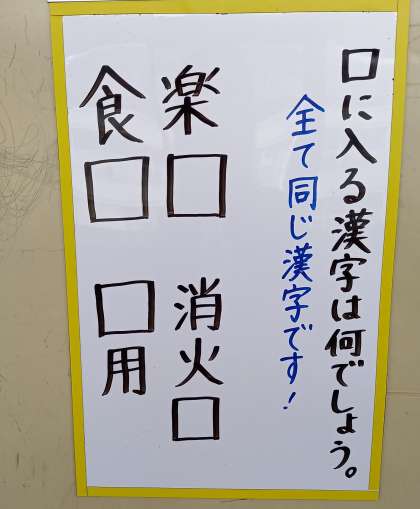 □に入る漢字は何でしょう。
全て同じ漢字です!
楽□
消火□
食□
□用